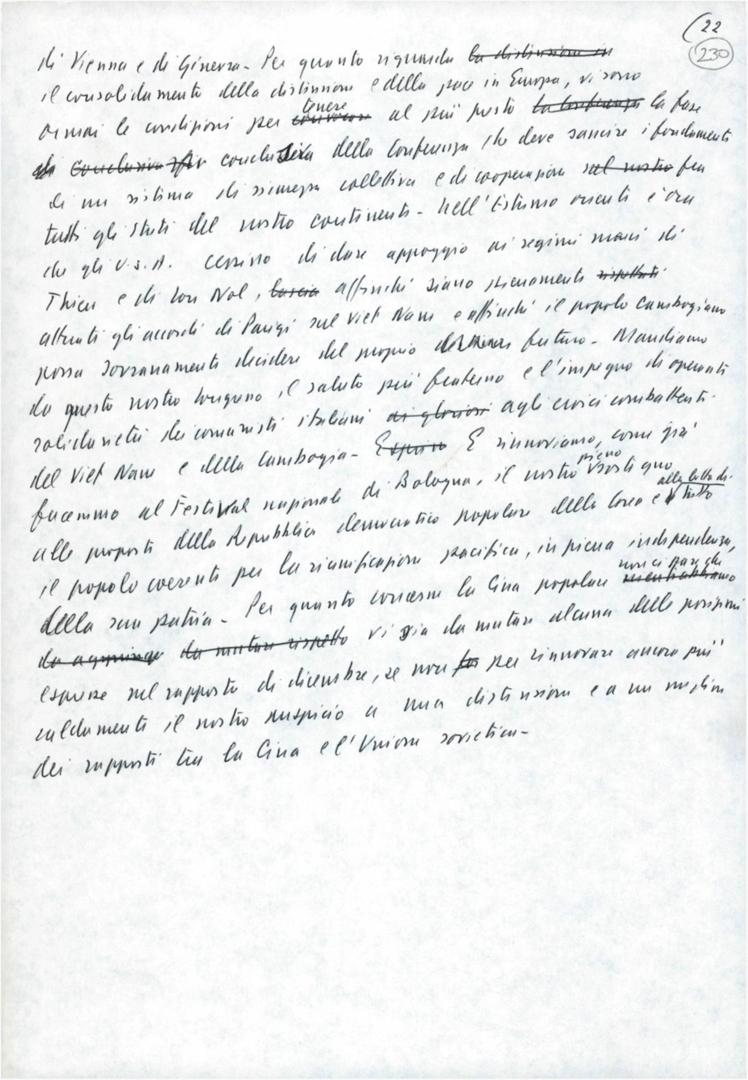 22
230
di Vienna e di Ginevra - Per quanto riguarda la distensione in
il consolidamento della distensione e della pace in Europa, vi sono
tenere
ormai le condizioni per convocare al più presto la conferenza la fase
di conclusiva per conclusiva della Conferenza che deve sancire i fondamenti
di un sistema di sicurezza collettiva e di cooperazione nel nostro fra
tutti gli Stati del nostro continente - Nell'Estremo oriente è ora
che gli U.S.A. cessino di dare appoggio ai regimi marci di
Thieu e di Lon Nol, lascia affinché siano pienamente rispettati
attuati gli accordi di Parigi sul Viet Nam e affinché il popolo cambogiano
possa sovranamente decidere del proprio futuro - Mandiamo
da questo nostro congresso il saluto più fraterno e l'impegno di operante
solidarietà dei comunisti italiani ai gloriosi agli eroici combattenti
del Viet Nam e della Cambogia - E rinnoviamo, come già
pieno
facemmo al Festival nazionale di Bologna, il nostro sostegno
alla lotta di
alle proposte della Repubblica democratica popolare della Corea e tutto
il popolo coreano per la riunificazione pacifica, in piena indipendenza,
non ci pare che
della sua patria - Per quanto concerne la Cina popolare
da aggiungere da mutare rispetto vi sia da mutare alcuna delle posizioni
espresse nel rapporto di dicembre, se non per rinnovare ancora più
caldamente il nostro auspicio a una distensione e a un miglior
dei rapporti tra la Cina e l'Unione sovietica -